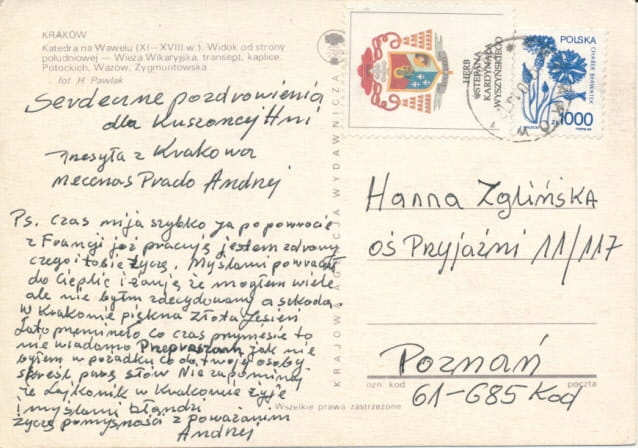 KRAKÓW
Katedra na Wawelu (XI—XVIII w.). Widok od strony
południowej — Wieża Wikaryjska, transept, kaplice
Potockich, Wazów, Zygmuntowska
fot H. Pawlak
Serdeczne pozdrowienia
dla Kuszancej Hni
przesyła z Krakowa
mecenas Prado Andrej
Ps. Czas mija szybko ja po powrocie
z Francji już pracuję jestem zdrowy
czego i tobie życzę. Myślami powracam
do Cieplic i żałuję że mogłem wiele
ale nie byłem zdecydowany a szkoda
W Krakowie piękna Złota Jesień
Lato przeminęło co czas przyniesie to
nie wiadomo Przepraszam jak nie
byłem w porządku co do twojej osoby
skreśl parę słów Nie zapominaj
że Lajkonik w Krakowie żyje
i myślami błądzi
życzę pomyślności z poważaniem
Andrej
KRAJOWA AGENCJA WYDAWNICZA
Wszelkie prawa zastrzeżone
HERB
STEFANA
KARDYNAŁA
WYSZYŃSKIEGO
POLSKA
CHABER BŁAWATEK
zł 1000
Hanna Zglińska
oś Przyjaźni 11/117
Poznań
ozn kod
poczta
61-685 Kod